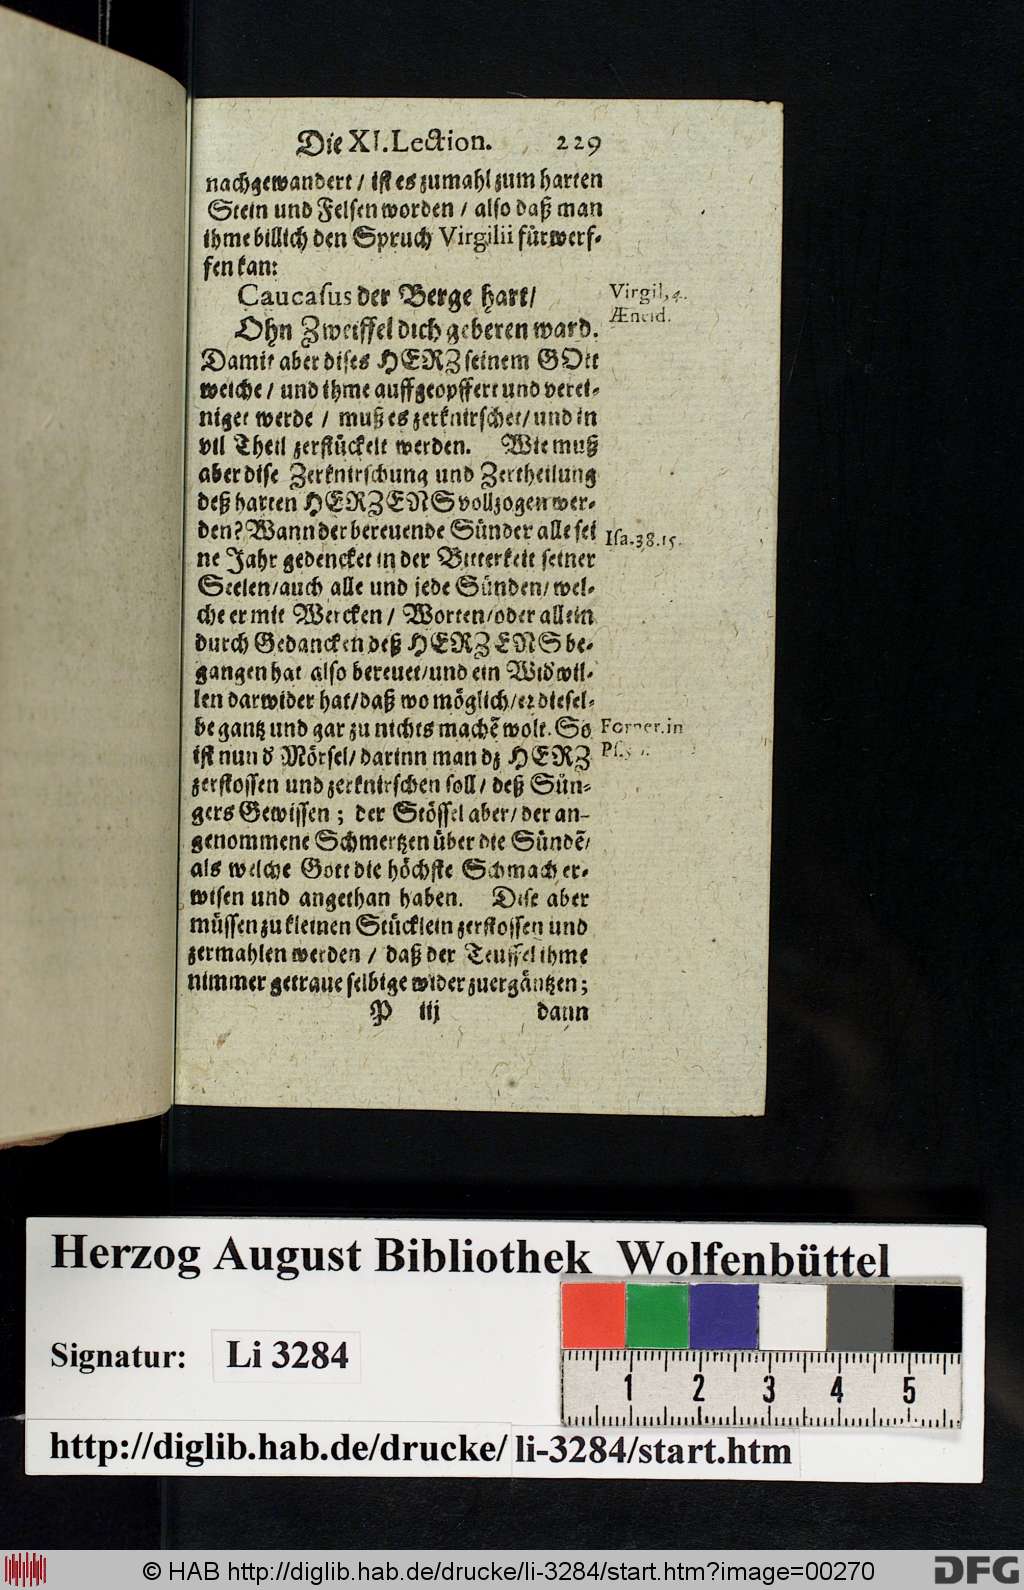 Die XI. Lection. 229
nachgewandert / ist es zumahl zum harten
Stein und Felsen worden / also daß man
ihme billich den Spruch Virgilii fürwerf-
fen kan:
Caucasus der Berge hart /
Ohn Zweiffel dich geberen ward.
Virgil, 4.
Æneid.
Damit aber dises HERZ seinem GOtt
weiche / und ihme auffgeopffert und verei-
niget werde / muß es zerknirschet / und in
vil Theil zerstückelt werden. Wie muß
aber dise Zerknirschung und Zertheilung
deß harten HERZENS vollzogen wer-
den? Wann der bereuende Sünder alle sei
ne Jahr gedencket in der Bitterkeit seiner
Isa. 38. 15.
Seelen / auch alle und jede Sünden / wel-
che er mit Wercken / Worten / oder allein
durch Gedancken deß HERZENS be-
gangen hat also bereuet / und ein Wid'wil-
len darwider hat / daß wo möglich / er diesel-
be gantz und gar zu nichts machē wolt. So
ist nun d' Mörsel / darinn man dz HERZ
Forner. in
Ps.
zerstossen und zerknirschen soll / deß Sün-
gers Gewissen ; der Stössel aber / der an-
genommene Schmertzen über die Sündē /
als welche Gott die höchste Schmach er-
wisen und angethan haben. Dise aber
müssen zu kleinen Stücklein zerstossen und
zermahlen werden / daß der Teuffel ihme
nimmer getraue selbige wider zuergäntzen ;
P iij dann
Herzog August Bibliothek Wolfenbüttel
Signatur: Li 3284
1 2 3 4 5
http://diglib.hab.de/drucke/ li-3284/start.htm
© HAB http://diglib.hab.de/drucke/li-3284/start.htm?image=00270
DFG